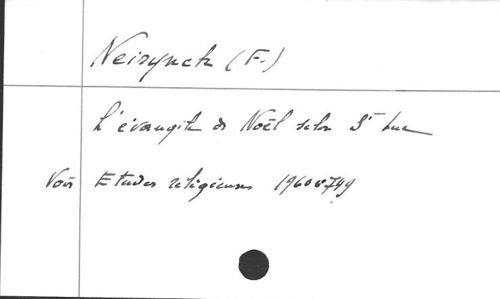 Neirynck (F.)
L'évangile de Noël selon St Luc
Voir Etudes religieuses 1960 n° 749